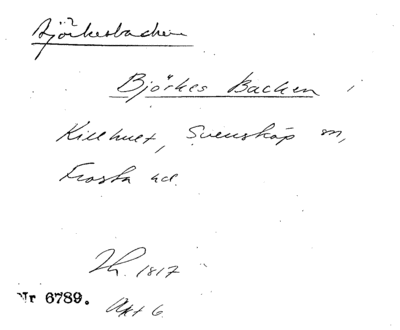 Björkesbacken
Björkes Backen,
Killhult, Svensköp sn,
Frosta hd.
Lh. 1817
Nr 6789. Akt 6